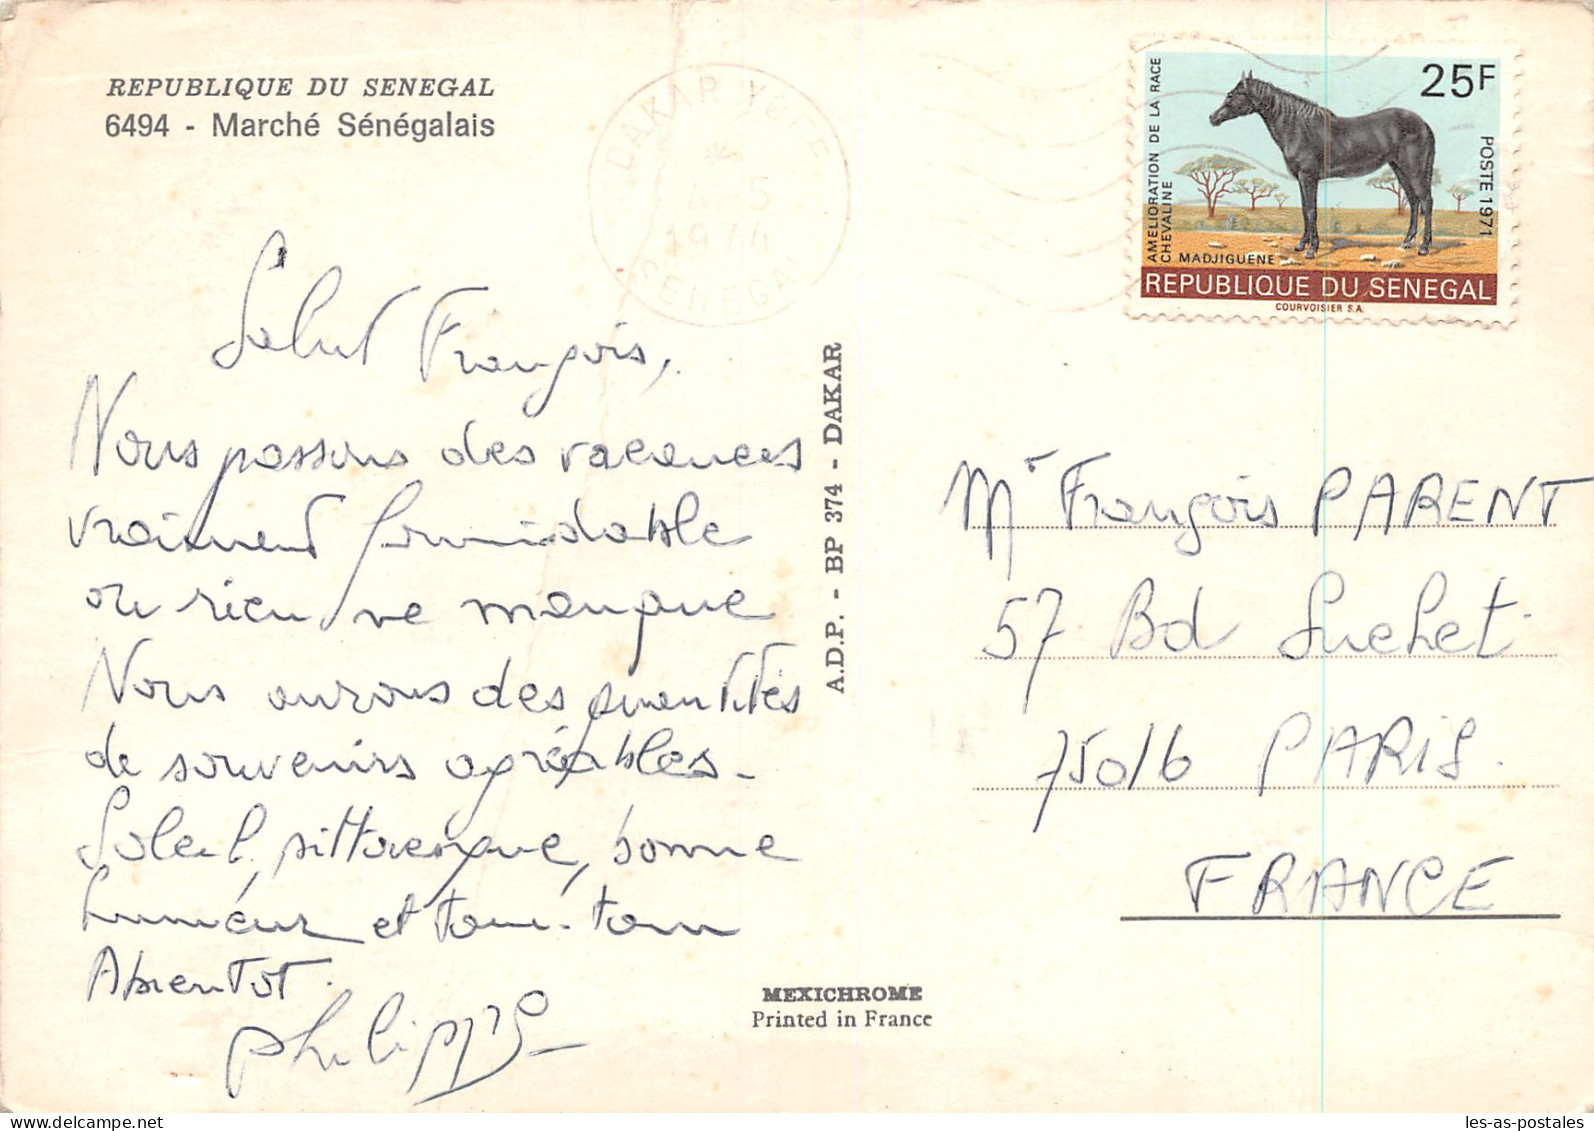 REPUBLIQUE DU SENEGAL
6494 - Marché Sénégalais
DAKAR YOFF
5
SENEGAL
25F
AMELIORATION DE LA RACE
CHEVALINE
POSTE 1971
MADJIGUENE
REPUBLIQUE DU SENEGAL
COURVOISIER S.A.
Salut François,
Nous passons des vacances
vraiment formidable
ou rien ne manque
Nous aurons des quantités
de souvenirs agréables.
Soleil, pittoresque, bonne
humeur et tam-tam
A bientôt.
Philippe
A.D.P. - BP 374 - DAKAR
Mr François PARENT
57 Bd Suchet
75016 PARIS.
FRANCE
MEXICHROME
Printed in France
les-as-postales